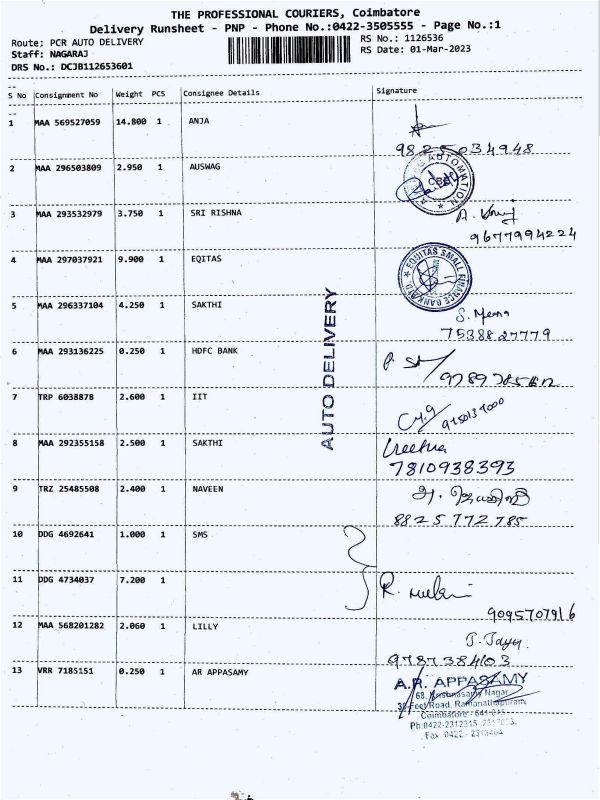 THE PROFESSIONAL COURIERS, Coimbatore
Delivery Runsheet - PNP - Phone No.:0422-3505555 - Page No.:1
Route; PCR AUTO DELIVERY
RS No.: 1126536
Staff: NAGARAJ
RS Date: 01-Mar-2023
DRS No.: DCJB112653601
S No Consignment No Weight PCS Consignee Details Signature
1 MAA 569527059 14.800 1 ANJA
9825034948
2 MAA 296503809 2.950 1 AUSWAG
AUTOMATION
3 MAA 293532979 3.750 1 SRI RISHNA
9677994224
4 MAA 297037921 9.900 1 EQITAS
EQUITAS SMALL FINANCE BANK
5 MAA 296337104 4.250 1 SAKTHI
S. Mena
7538827779
6 MAA 293136225 0.250 1 HDFC BANK
7 TRP 6038878 2.600 1 IIT
8 MAA 292355158 2.500 1 SAKTHI
7810938393
9 TRZ 25485508 2.400 1 NAVEEN
8825772785
10 DDG 4692641 1.000 1 SMS
11 DDG 4734037 7.200 1
9095707916
12 MAA 568201282 2.060 1 LILLY
9787384103
13 VRR 7185151 0.250 1 AR APPASAMY
A.R. APPASAMY
68, Krishnasamy Nagar
Feet Road, Ramanathapuram
Coimbatore - 641 045
Ph:0422-2312315
Fax: 0422 -
AUTO DELIVERY